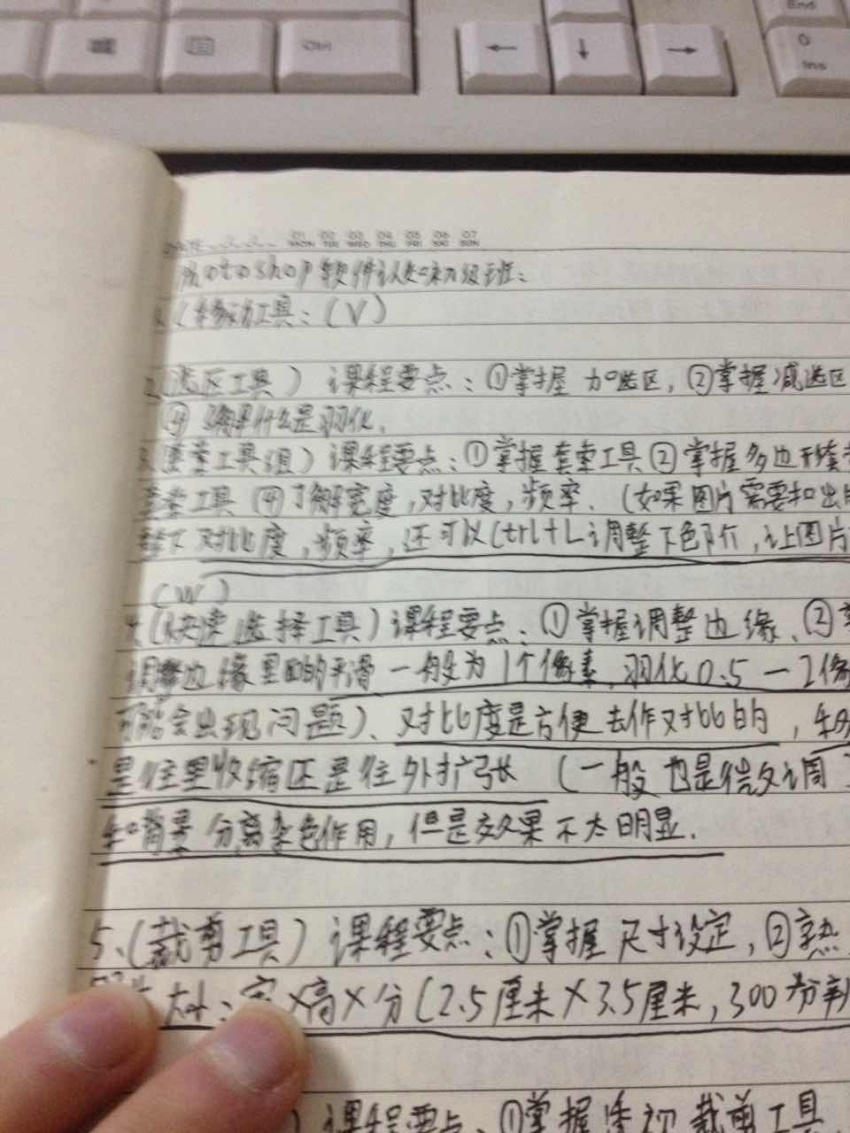 End
Ctrl
←
↓
→
0
Ins
01 02 03 04 05 06 07
MON TUE WED THU FRI SAT SUN
photoshop软件认处理初级班:
1、(移动工具:(V)
2、(选区工具) 课程要点:①掌握加选区,②掌握减选区
④了解什么是羽化.
3.(套索工具组) 课程要点:①掌握套索工具②掌握多边形套
套索工具 ④了解宽度,对比度,频率.(如果图片需要扣出
整下对比度,频率,还可以Ctrl+L调整下色阶,让图片
(W)
4.(快速选择工具)课程要点:①掌握调整边缘、②
调整边缘里面的平滑一般为1个像素,羽化0.5一2像
可能会出现问题)、对比度是方便去作对比的,
是往里收缩还是往外扩张 (一般也是微调
和背景分离杂色作用,但是效果不太明显.
5、(裁剪工具) 课程要点:①掌握尺寸设定,②熟
大小:宽×高×分(2.5厘米×3.5厘米,300分辨
)课程要点、①掌握透视裁剪工具